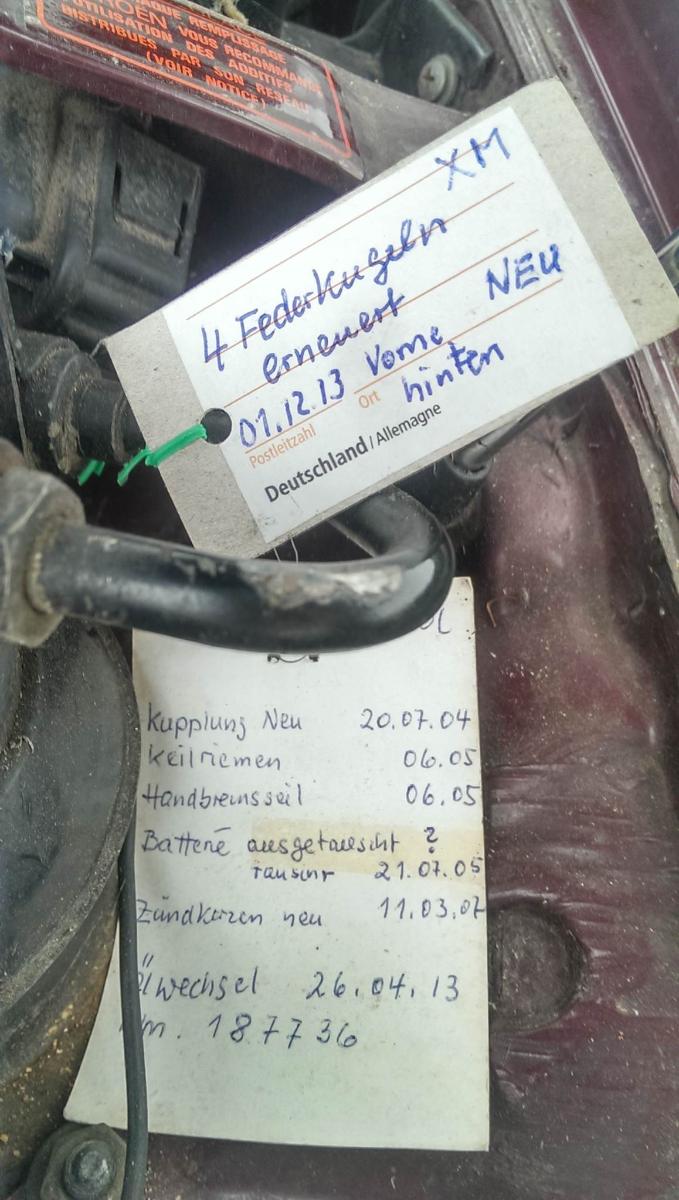 AQUE REMPLISSAGE
ROËN VOUS RECOMMANDE
UTILISATION DES ADDITIFS
DISTRIBUÉS PAR SON RESEAU
(VOIR NOTICE)
XM
4 Federkugeln
erneuert NEU
01.12.13 Vorne
hinten
Postleitzahl Ort
Deutschland / Allemagne
Kupplung Neu 20.07.04
Keilriemen 06.05
Handbremsseil 06.05
Batterie ausgetauscht ?
tauschr 21.07.05
Zündkerzen neu 11.03.07
Ölwechsel 26.04.13
187736